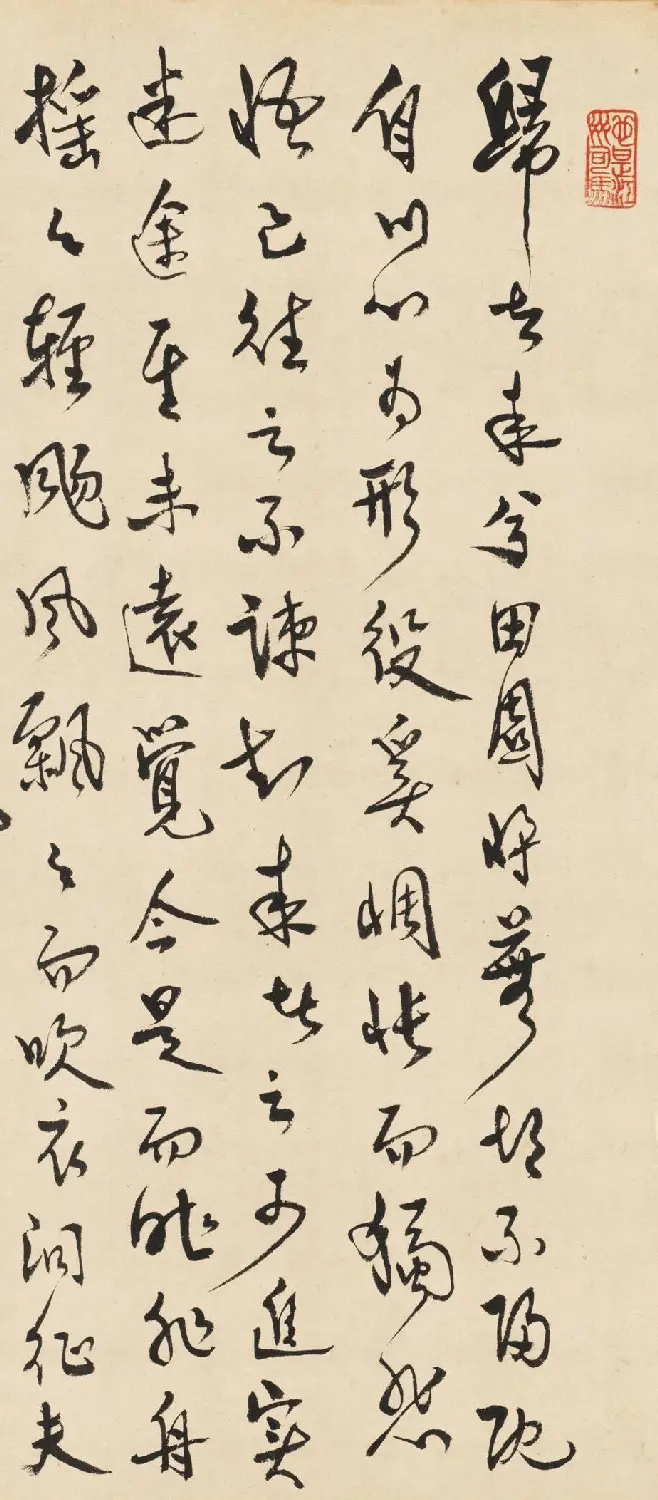 歸去来兮田園将蕪胡不歸既
自以心為形役奚惆悵而獨悲
悟已往之不諫知来者之可追實
迷途其未遠覺今是而昨非舟
搖々輕颺風飄々而吹衣問征夫